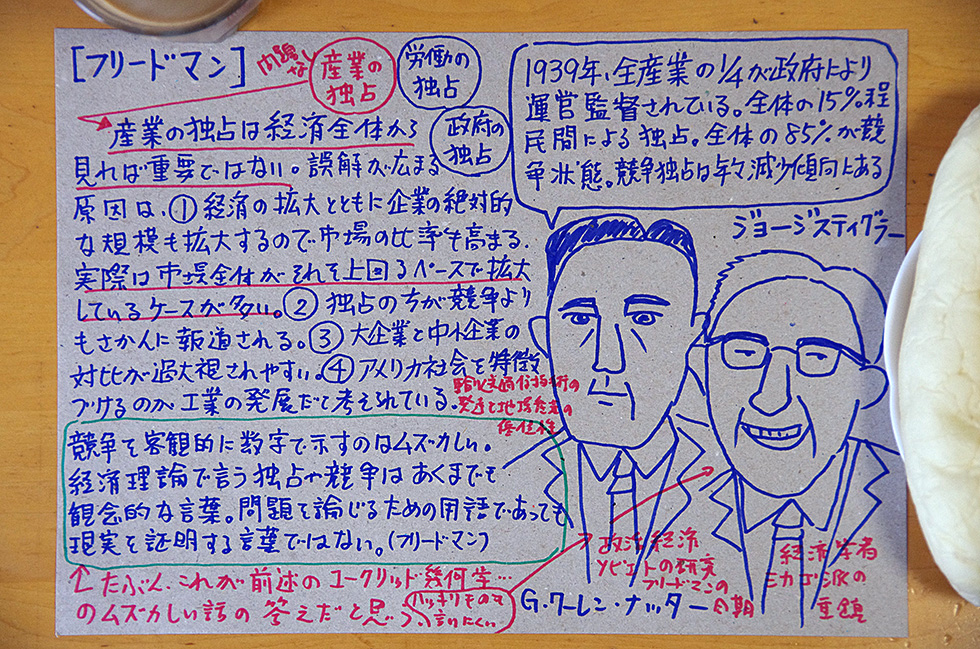 [フリードマン]
問題なし
産業の
独占
労働の
独占
政府の
独占
産業の独占は経済全体から
見れば重要ではない。誤解が広まる
原因は、①経済の拡大とともに企業の絶対的
な規模も拡大するので市場の比率も高まる。
実際は市場全体がそれを上回るペースで拡大
しているケースが多い。②独占の方が競争より
もさかんに報道される。③大企業と中小企業の
対比が過大視されやすい。④アメリカ社会を特徴
づけるのが工業の発展だと考えられている。
競争を客観的に数字で示すのはムズカしい。
経済理論で言う独占や競争はあくまでも
観念的な言葉。問題を論じるための用語であっても
現実を証明する言葉ではない。(フリードマン)
↑たぶん、これが前述のユークリッド幾何学…
のムズカしい話の答えだと思う
ハッキリそのもの
言いにくい
1939年、全産業の1/4が政府により
運営監督されている。全体の15%程
民間による独占。全体の85%が競
争状態。競争独占は年々減少傾向にある
ジョージスティグラー
政治経済
ソビエトの研究
フリードマンの
同期
G.ワーレン・ナッター
経済学者
シカゴ派の
重鎮